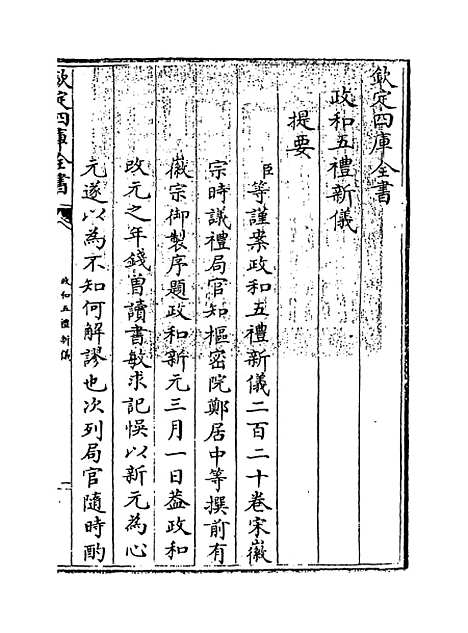 欽定四庫全書
政和五禮新儀
提要
臣等謹案政和五禮新儀二百二十卷宋徽
宗時議禮局官知樞密院鄭居中等撰前有
徽宗御製序題政和新元三月一日葢政和
改元之年錢曾讀書敏求記悞以新元為心
元遂以為不知何解謬也次列局官隨時酌
欽定四庫全書
政和五禮新儀
一